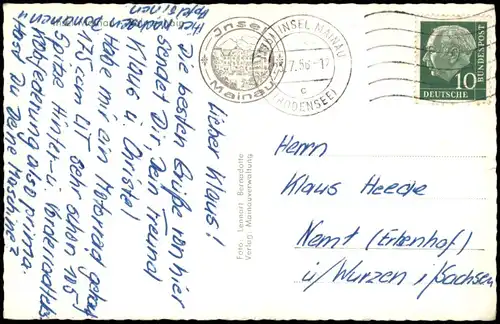 Lieber Klaus!
Die besten Grüße von hier
sendet Dir, Dein Freund
Klaus u. Christel
Habe mir ein Motorrad
175 ccm LT sehr schön 105
Spitze Hinter- u. Vorderrad
federung also prima.
Hast Du Deine Maschine
Insel
Mainau
INSEL MAINAU
.7.56-17
c
(BODENSEE)
10
DEUTSCHE
BUNDESPOST
Foto: Lennart Bernadotte
Verlag: Mainauverwaltung
Herrn
Klaus Heede
Nemt (Erlenhof)
ü/Wurzen i/Sachsen